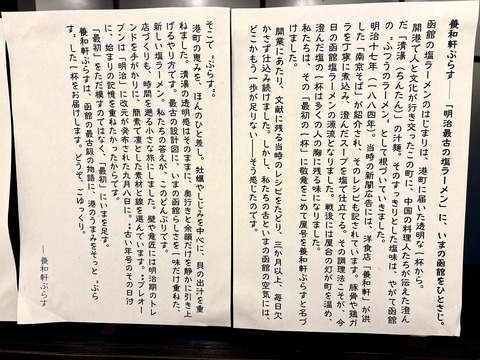 養和軒ぷらす 「明治最古の塩ラーメン」に、いまの函館をひとさじ。
函館の塩ラーメンのはじまりは、港町に届いた透明な一杯から。
開港で人と文化が行き交ったこの町に、中国の料理人たちが伝えた澄ん
だ「清湯（ちんたん）」の汁麺。そのすっきりとした塩味は、やがて函館
の〝ふつうのラーメン〟として根づいていきました。
明治十七年（一八八四年）、当時の新聞広告には、洋食店「養和軒」が供
した「南京そば」が紹介され、そのレシピも記されています。豚骨や鶏ガ
ラを丁寧に煮込み、澄んだスープを塩で仕立てる。その調理法こそが、今
日の函館塩ラーメンの源流となりました。戦後には屋台の灯が町を温め、
澄んだ塩の一杯は多くの人の胸に残る味になりました。
私たちは、その「最初の一杯」に敬意をこめて屋号を養和軒ぷらすと名づ
開業にあたり、文献に残る当時のレシピをたどり、三か月以上、毎日欠
かさず仕込み続けました。しかし、私たちの舌といまの函館の空気には、
どこかもう一歩が足りない――そう感じたのです。
そこで〝ぷらす〟。
港町の恵みを、ほんのひと差し。牡蠣やしじみを中心に、貝の出汁を重
ねました。清湯の透明感はそのままに、奥行きと余韻だけを静かに引き上
げるやり方です。最古の設計図に、いまの函館らしさを一味だけ重ねた、
新しい塩ラーメン。私たちの答えが、このどんぶりです。
店づくりも、時間を遡る小さな旅にしました。壁や竜匠には明治期のトレ
ンドを手がかりに、簡素で凛とした素材と線を選んでいます。プレオー
プンは「明治」に改元が発布された九月八日に。古い年号のその日付
に、始まりの記憶を重ねたかったからです。
「最初」をただ模すのではなく、「最初」にいまを足す。
養和軒ぷらすは、函館の最古級の物語に、港のうまみをそっと〝ぷら
す〟した一杯をお届けします。どうぞ、ごゆっくり。
―養和軒ぷらす